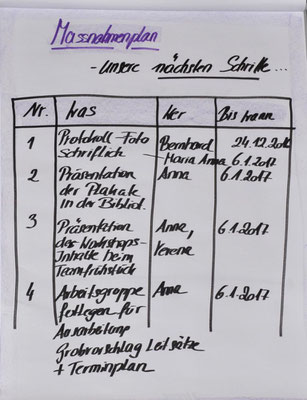 Massnahmenplan
- unsere nächsten Schritte...
Nr. Was Wer Bis wann
1 Protokoll - Foto Bernhard 24.12.2016
Schriftlich - Maria Anna 6.1.2017
2 Präsentation Anna 6.1.2017
der Plakate
in der Bibliot.
3 Präsentation Anna, 6.1.2017
des Workshops- Verena
Inhalte beim
Teamfrühstück
4 Arbeitsgruppe Anna 6.1.2017
festlegen für
Ausarbeitung
Grobvorschlag Leitsätze
+ Terminplan